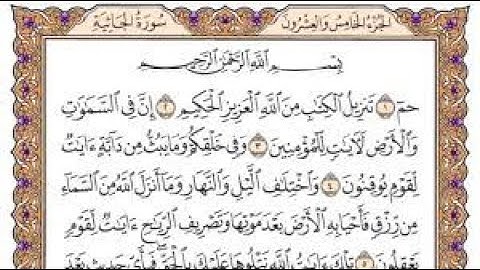 الجزء الخامس والعشرون
سورة الجاثية
بِسْمِ اللَّهِ الرَّحْمَٰنِ الرَّحِيمِ
حمٓ ١ تَنزِيلُ الْكِتَابِ مِنَ اللَّهِ الْعَزِيزِ الْحَكِيمِ ٢ إِنَّ فِي السَّمَاوَاتِ
وَالْأَرْضِ لَآيَاتٍ لِّلْمُؤْمِنِينَ ٣ وَفِي خَلْقِكُمْ وَمَا يَبُثُّ مِن دَابَّةٍ ءَايَاتٌ
لِّقَوْمٍ يُوقِنُونَ ٤ وَاخْتِلَافِ اللَّيْلِ وَالنَّهَارِ وَمَا أَنزَلَ اللَّهُ مِنَ السَّمَاءِ
مِن رِّزْقٍ فَأَحْيَا بِهِ الْأَرْضَ بَعْدَ مَوْتِهَا وَتَصْرِيفِ الرِّيَاحِ ءَايَاتٌ لِّقَوْمٍ
يَعْقِلُونَ ٥ تِلْكَ ءَايَاتُ اللَّهِ نَتْلُوهَا عَلَيْكَ بِالْحَقِّ فَبِأَيِّ حَدِيثٍ بَعْدَ